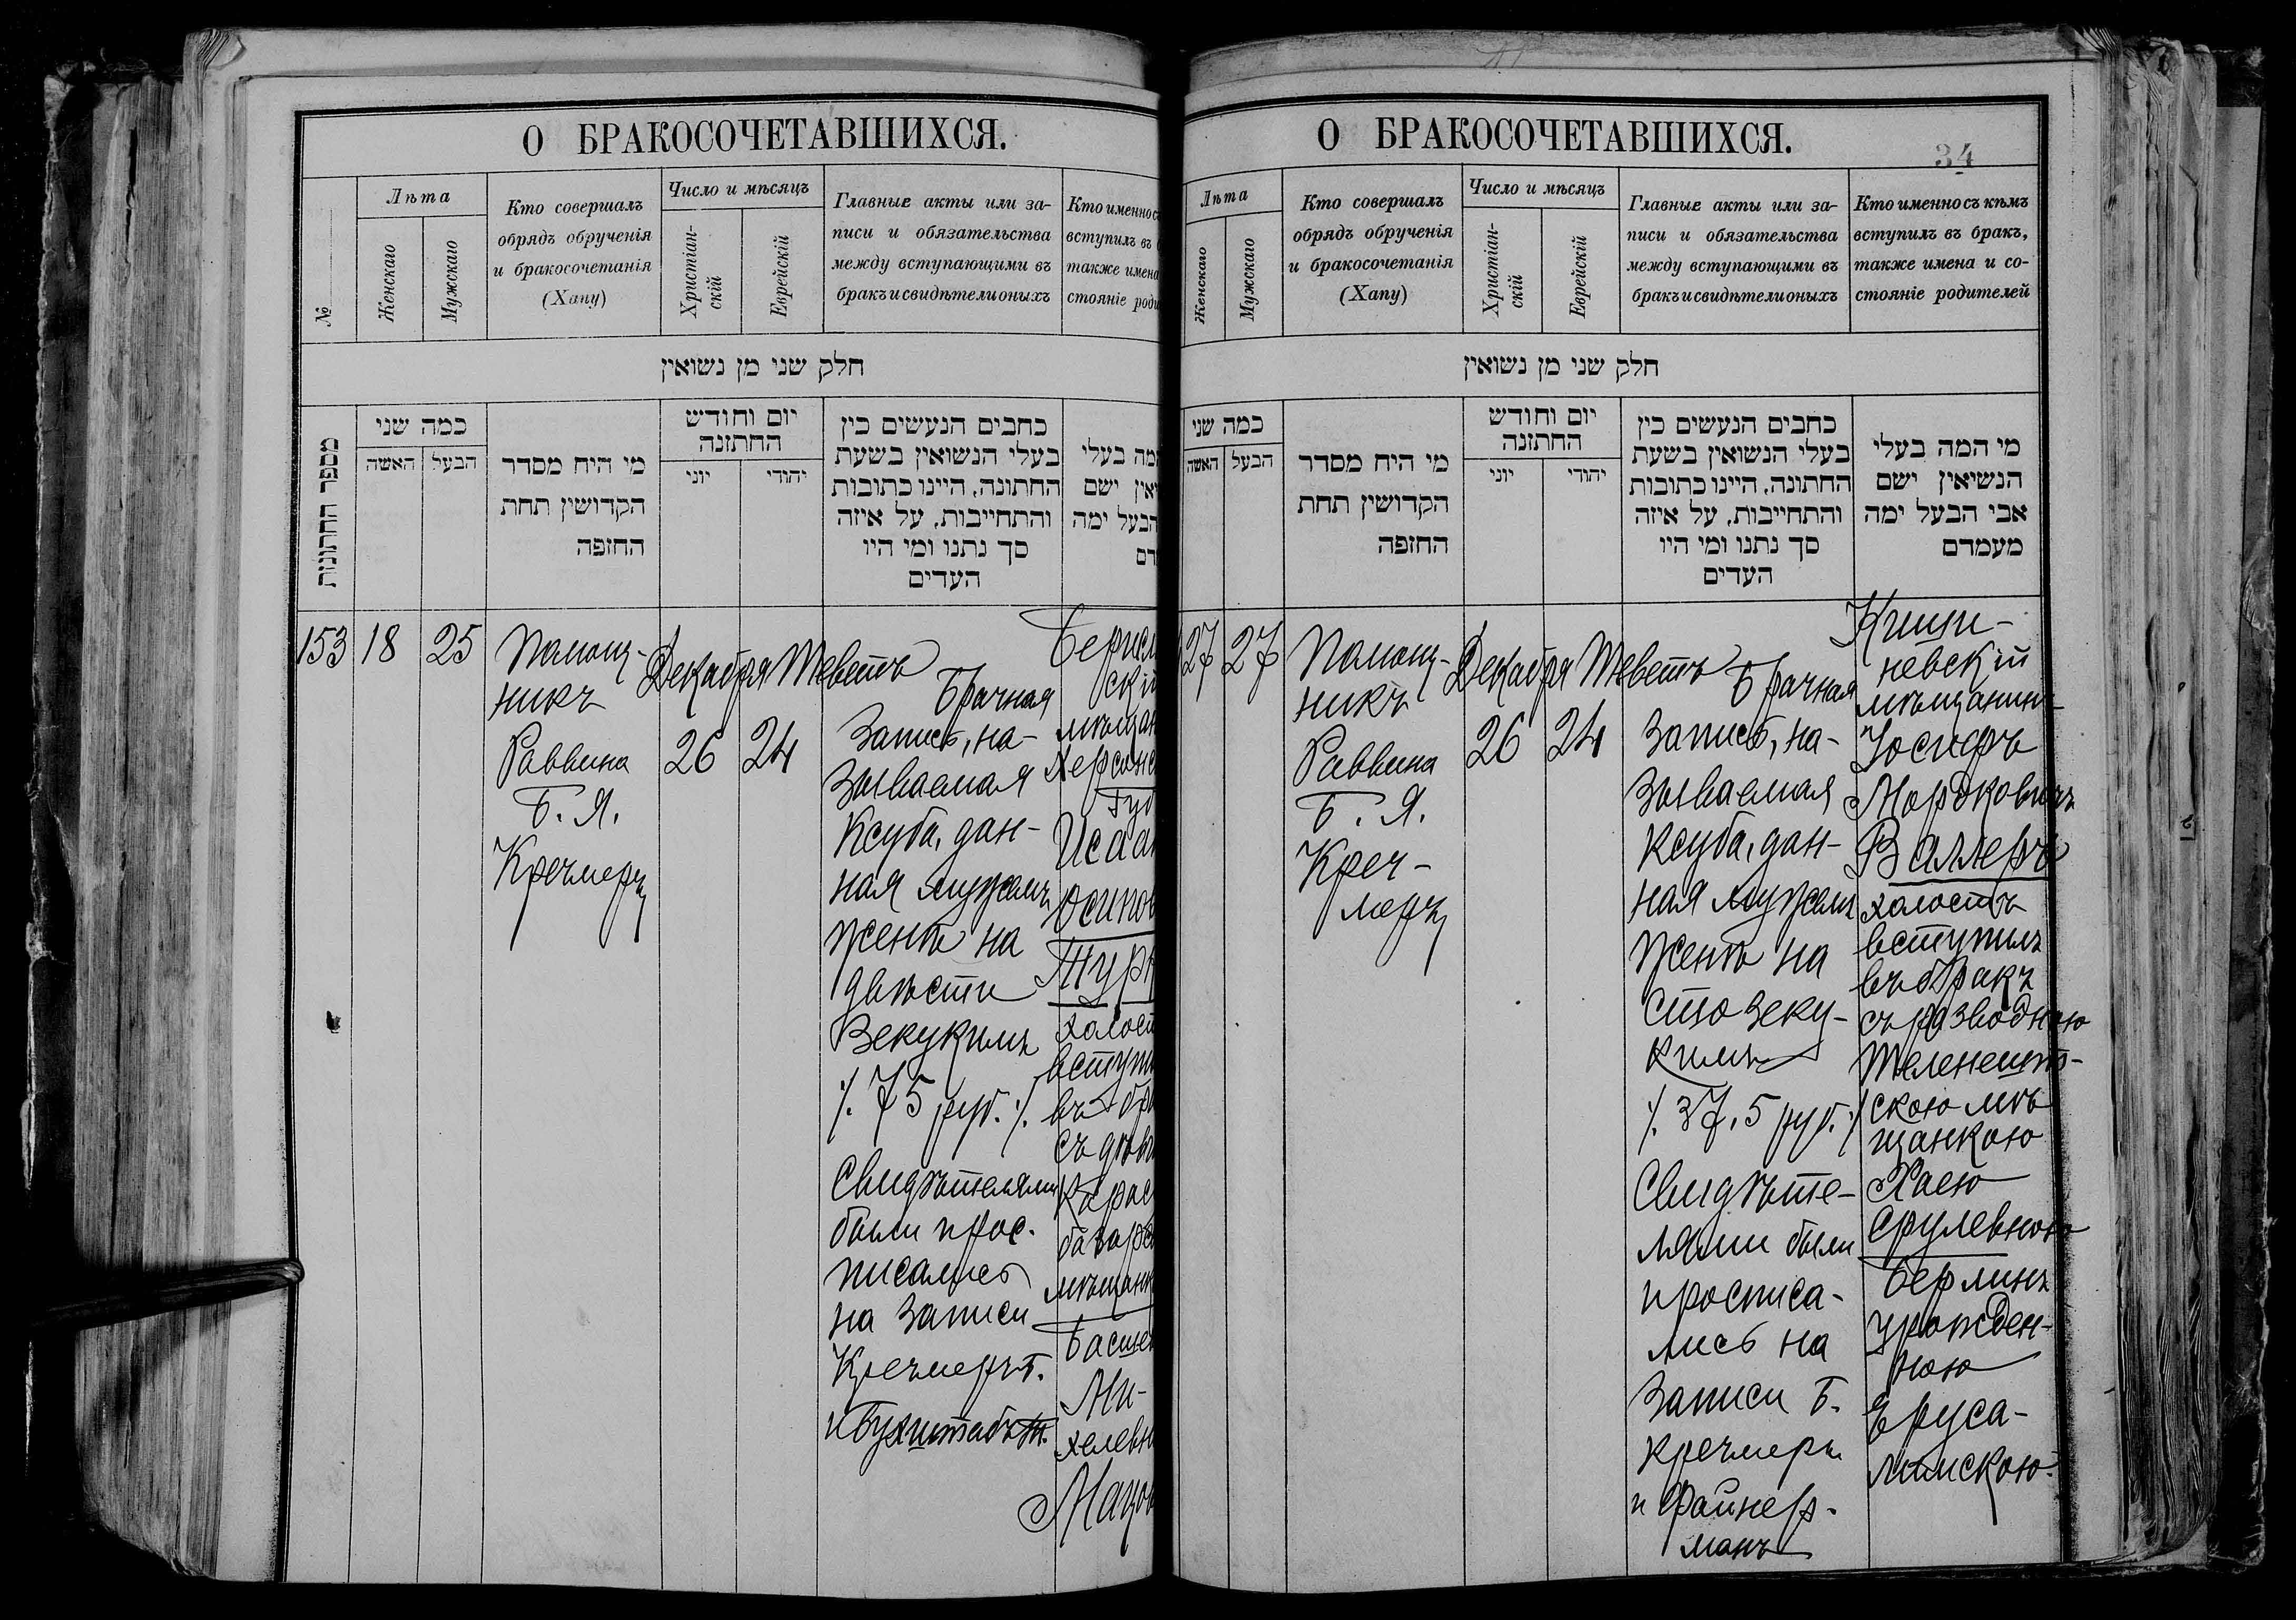 О БРАКОСОЧЕТАВШИХСЯ.
№
Лѣта
Женскаго
Мужскаго
Кто совершалъ
обрядъ обрученія
и бракосочетанія
(Хапу)
Число и мѣсяцъ
Христіан-
скій
Еврейскій
Главные акты или за-
писи и обязательства
между вступающими въ
бракъ и свидѣтели оныхъ
Кто именно съ
вступилъ въ
также имена
стояніе роди
חלק שני מן נשואין
מספר החתונות
כמה שני
האשה
הבעל
מי היח מסדר
הקדושין תחת
החופה
יום וחודש
החתונה
יוני
יהודי
כתבים הנעשים בין
בעלי הנשואין בשעת
החתונה, היינו כתובות
והתחייבות, על איזה
סך נתנו ומי היו
העדים
המה בעלי
ואין ישם
הבעל ימה
153
18
25
Помощ-
никъ
Раввина
Б. Я.
Кречмеръ
Декабря
26
Теветъ
24
Брачная
запись, на-
зываемая
Ксуба, дан-
ная мужемъ
женѣ на
двѣсти
Зекукимъ
/. 75 руб. /.
Свидѣтелями
были и рос-
писались
на записи
Кречмеръ Б.
и Бухштабъ
Берисл
скій
мѣщан
Херсонс
Губ
Исаак
Юсипов
Турк
холост
вступи
въ бра
съ дѣви
Карас
базарск
мѣщанк
Басшев
Ми-
хелевн
Мацов
О БРАКОСОЧЕТАВШИХСЯ.
34
Лѣта
Женскаго
Мужскаго
Кто совершалъ
обрядъ обрученія
и бракосочетанія
(Хапу)
Число и мѣсяцъ
Христіан-
скій
Еврейскій
Главные акты или за-
писи и обязательства
между вступающими въ
бракъ и свидѣтели оныхъ
Кто именно съ кѣмъ
вступилъ въ бракъ,
также имена и со-
стояніе родителей
חלק שני מן נשואין
כמה שני
האשה
הבעל
מי היח מסדר
הקדושין תחת
החופה
יום וחודש
החתונה
יוני
יהודי
כתבים הנעשים בין
בעלי הנשואין בשעת
החתונה, היינו כתובות
והתחייבות, על איזה
סך נתנו ומי היו
העדים
מי המה בעלי
הנשיאין ישם
אבי הבעל ימה
מעמדם
27
27
Помощ-
никъ
Раввина
Б. Я.
Креч-
меръ
Декабря
26
Теветъ
24
Брачная
запись, на-
зываемая
Ксуба, дан-
ная мужемъ
женѣ на
сто зеку-
кимъ
/. 37,5 руб. /
Свидѣте-
лями были
и росписа-
лись на
записи Б.
Кречмеръ
и Файнер-
манъ
Киши-
невскій
мѣщанинъ
Іосифъ
Мордковичъ
Валлеръ
холостъ
вступилъ
въ бракъ
съ разводною
Теленешт-
скою мѣ-
щанкою
Хаею
Срулевною
Берлинъ
урожден-
ною
Еруса-
лимскою.